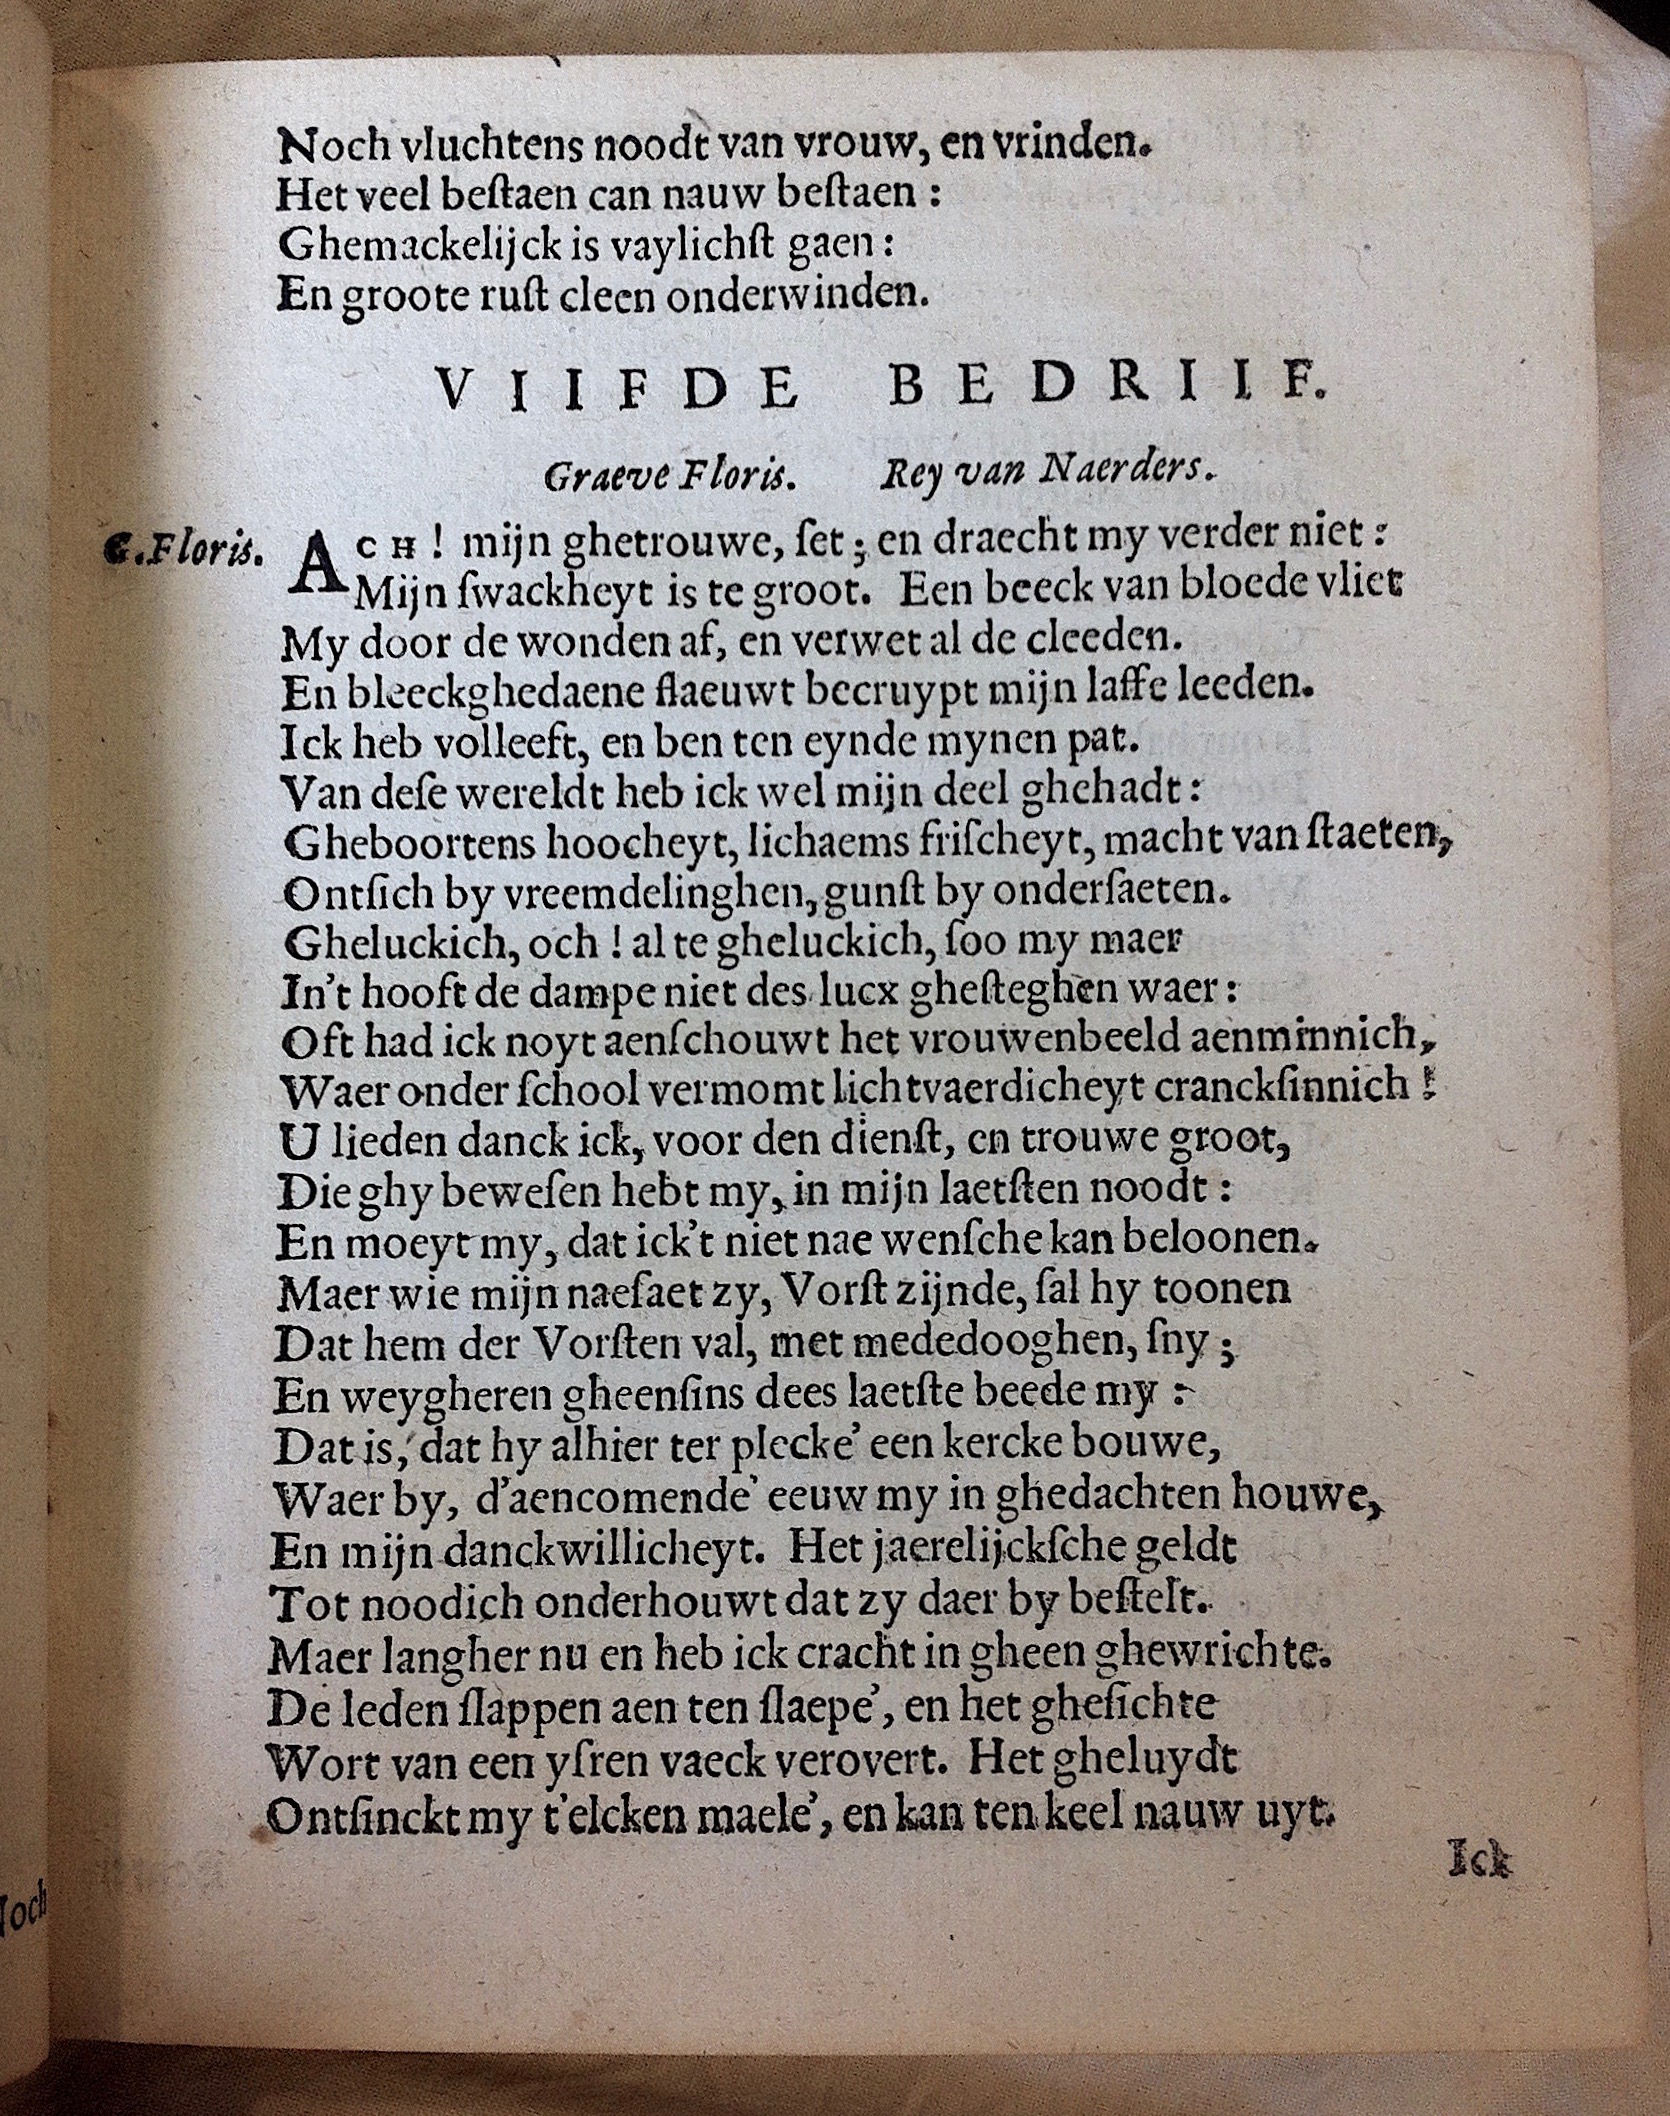 Noch vluchtens noodt van vrouw, en vrinden.
Het veel beſtaen can nauw beſtaen :
Ghemackelijck is vaylichſt gaen :
En groote ruſt cleen onderwinden.
VIIFDE BEDRIIF.
Graeve Floris. Rey van Naerders.
G. Floris. ACH ! mijn ghetrouwe, ſet ; en draecht my verder niet :
Mijn ſwackheyt is te groot. Een beeck van bloede vliet
My door de wonden af, en verwet al de cleeden.
En bleeckghedaene flaeuwt becruypt mijn laffe leeden.
Ick heb volleeft, en ben ten eynde mynen pat.
Van deſe wereldt heb ick wel mijn deel ghehadt :
Gheboortens hoocheyt, lichaems friſcheyt, macht van ſtaeten,
Ontſich by vreemdelinghen, gunſt by onderſaeten.
Gheluckich, och ! al te gheluckich, ſoo my maer
In't hooft de dampe niet des lucx gheſteghen waer :
Oft had ick noyt aenſchouwt het vrouwenbeeld aenminnich,
Waer onder ſchool vermomt lichtvaerdicheyt cranckſinnich !
U lieden danck ick, voor den dienſt, en trouwe groot,
Die ghy beweſen hebt my, in mijn laetſten noodt :
En moeyt my, dat ick't niet nae wenſche kan beloonen.
Maer wie mijn naeſaet zy, Vorſt zijnde, ſal hy toonen
Dat hem der Vorſten val, met mededooghen, ſny ;
En weygheren gheenſins dees laetſte beede my :
Dat is, dat hy alhier ter plecke' een kercke bouwe,
Waer by, d'aencomende' eeuw my in ghedachten houwe,
En mijn danckwillicheyt. Het jaerelijckſche geldt
Tot noodich onderhouwt dat zy daer by beſtelt.
Maer langher nu en heb ick cracht in gheen ghewrichte.
De leden ſlappen aen ten ſlaepe', en het gheſichte
Wort van een yſren vaeck verovert. Het gheluydt
Ontſinckt my t'elcken maele', en kan ten keel nauw uyt.
Ick